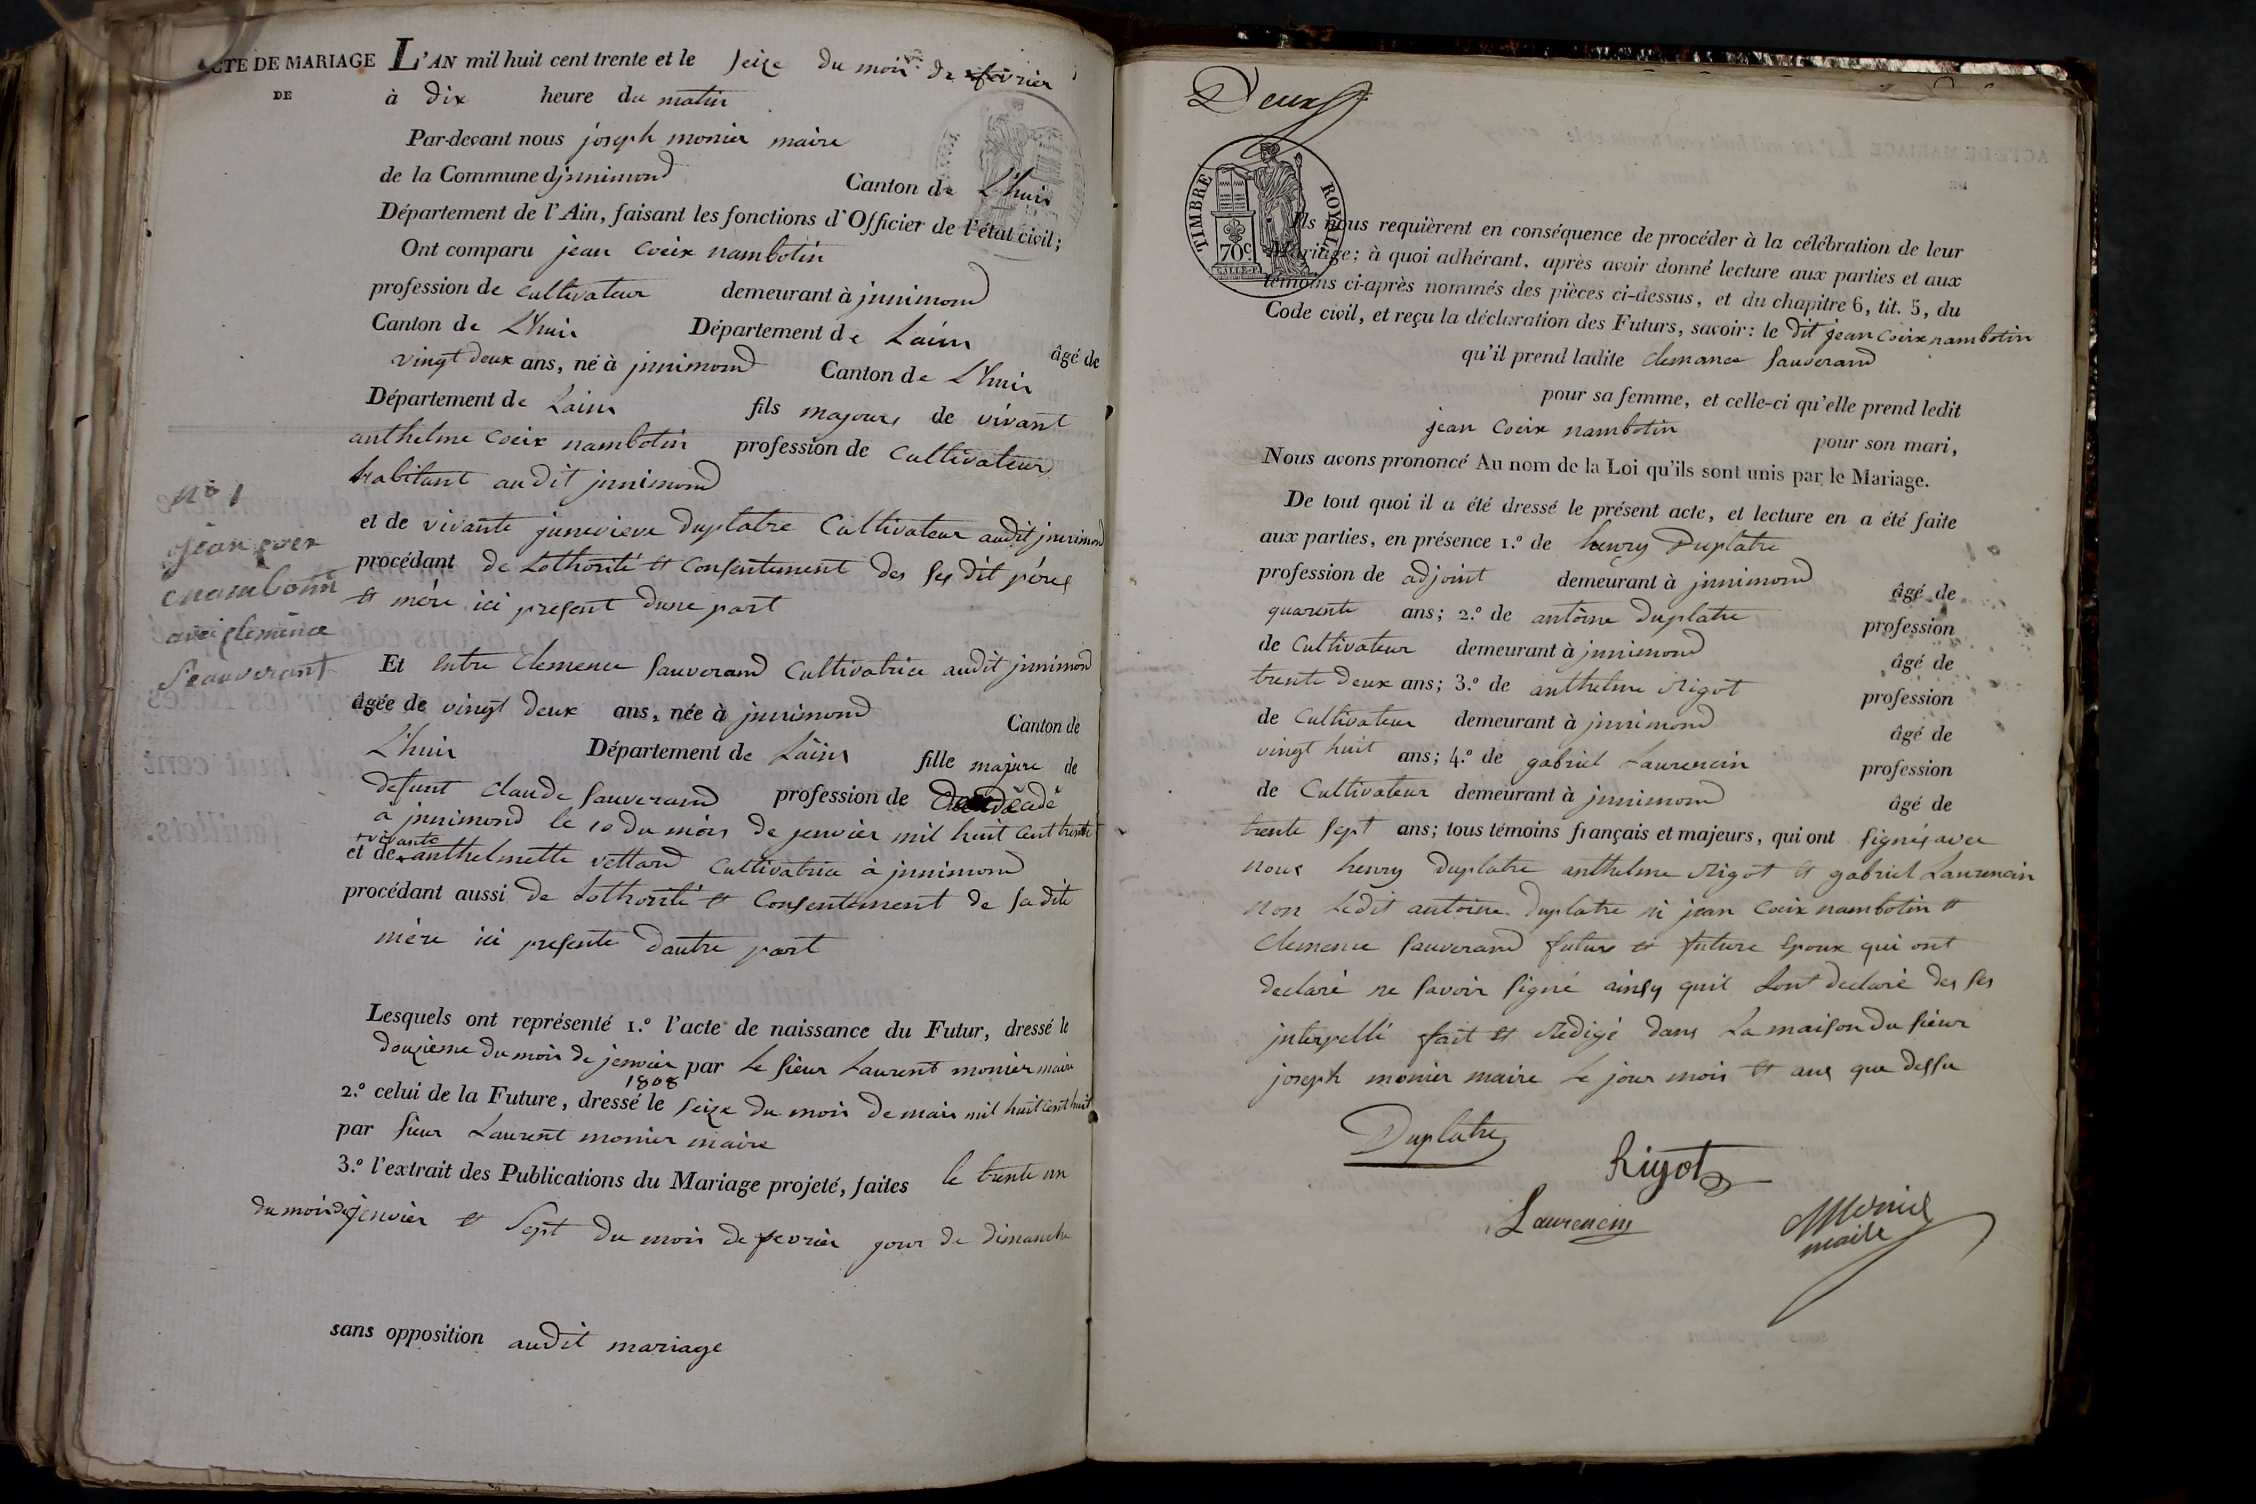 ACTE DE MARIAGE
DE
L'AN mil huit cent trente et le seize du mois de fevrier
à dix heure du matin
Par-devant nous joseph monier maire
de la Commune djnnimond Canton de L'huis
Département de l'Ain, faisant les fonctions d'Officier de l'état civil;
Ont comparu jean Coeix nambotin
profession de Cultivateur demeurant à jnnimond
Canton de L'huis Département de Lain âgé de
vingt deux ans, né à jnnimond Canton de L'huis
Département de Lain fils majours de vivant
anthelme Coeix nambotin profession de Cultivateur
habitant audit jnnimond
et de vivante junevieve Duplatre Cultivateur audit jnnimond
procédant de Lothorité et Consentement des ses dit péres
et mére ici present dune part
n° 1
jean coex
nambotin
avec clemence
Seauverant
Et entre Clemence Sauverand Cultivatrice audit jnnimond
âgée de vingt deux ans, née à jnnimond Canton de
L'huis Département de Lain fille majure de
defunt Claude Sauverand profession de
à jnnimond le 10 du mois de jenvier mil huit cent trente
vivante
et de anthelmette vettard Cultivatrice à jnnimond
procédant aussi de Lothorité et Consentement de sa dite
mére ici presente dautre part
Lesquels ont représenté 1.º l'acte de naissance du Futur, dressé le
douzieme du mois de jenvier par le sieur Laurent monier maire
1808
2.º celui de la Future, dressé le seize du mois de mars mil huit cent huit
par sieur Laurent monier maire
3.º l'extrait des Publications du Mariage projeté, faites le trente un
du mois de jenvier et sept du mois de fevrier jour de dimanche
sans opposition audit mariage
Deux
TIMBRE ROYAL
70c
Ils nous requièrent en conséquence de procéder à la célébration de leur
Mariage; à quoi adhérant, après avoir donné lecture aux parties et aux
témoins ci-après nommés des pièces ci-dessus, et du chapitre 6, tit. 5, du
Code civil, et reçu la déclaration des Futurs, savoir: le dit jean Coeix nambotin
qu'il prend ladite Clemance Sauverand
pour sa femme, et celle-ci qu'elle prend ledit
jean Coeix nambotin pour son mari,
Nous avons prononcé Au nom de la Loi qu'ils sont unis par le Mariage.
De tout quoi il a été dressé le présent acte, et lecture en a été faite
aux parties, en présence 1.º de henry Duplatre
profession de adjoint demeurant à jnnimond âgé de
quarente ans; 2.º de antoine Duplatre profession
de Cultivateur demeurant à jnnimond âgé de
trente deux ans; 3.º de anthelme Rigot profession
de Cultivateur demeurant à jnnimond âgé de
vingt huit ans; 4.º de gabriel Laurencin profession
de Cultivateur demeurant à jnnimond âgé de
trente sept ans; tous témoins français et majeurs, qui ont signés avec
nous henry Duplatre anthelme Rigot et gabriel Laurencin
non ledit antoine Duplatre ni jean Coeix nambotin et
Clemence Sauverand futur et future Epoux qui ont
declaré ne savoir signé ainsy quil Lont declaré des ses
jnterpellé fait et Redigé dans La maison du sieur
joseph monier maire Le jour mois et ans que dessu
Duplatre
Rigot
Laurencin
Monier
maire